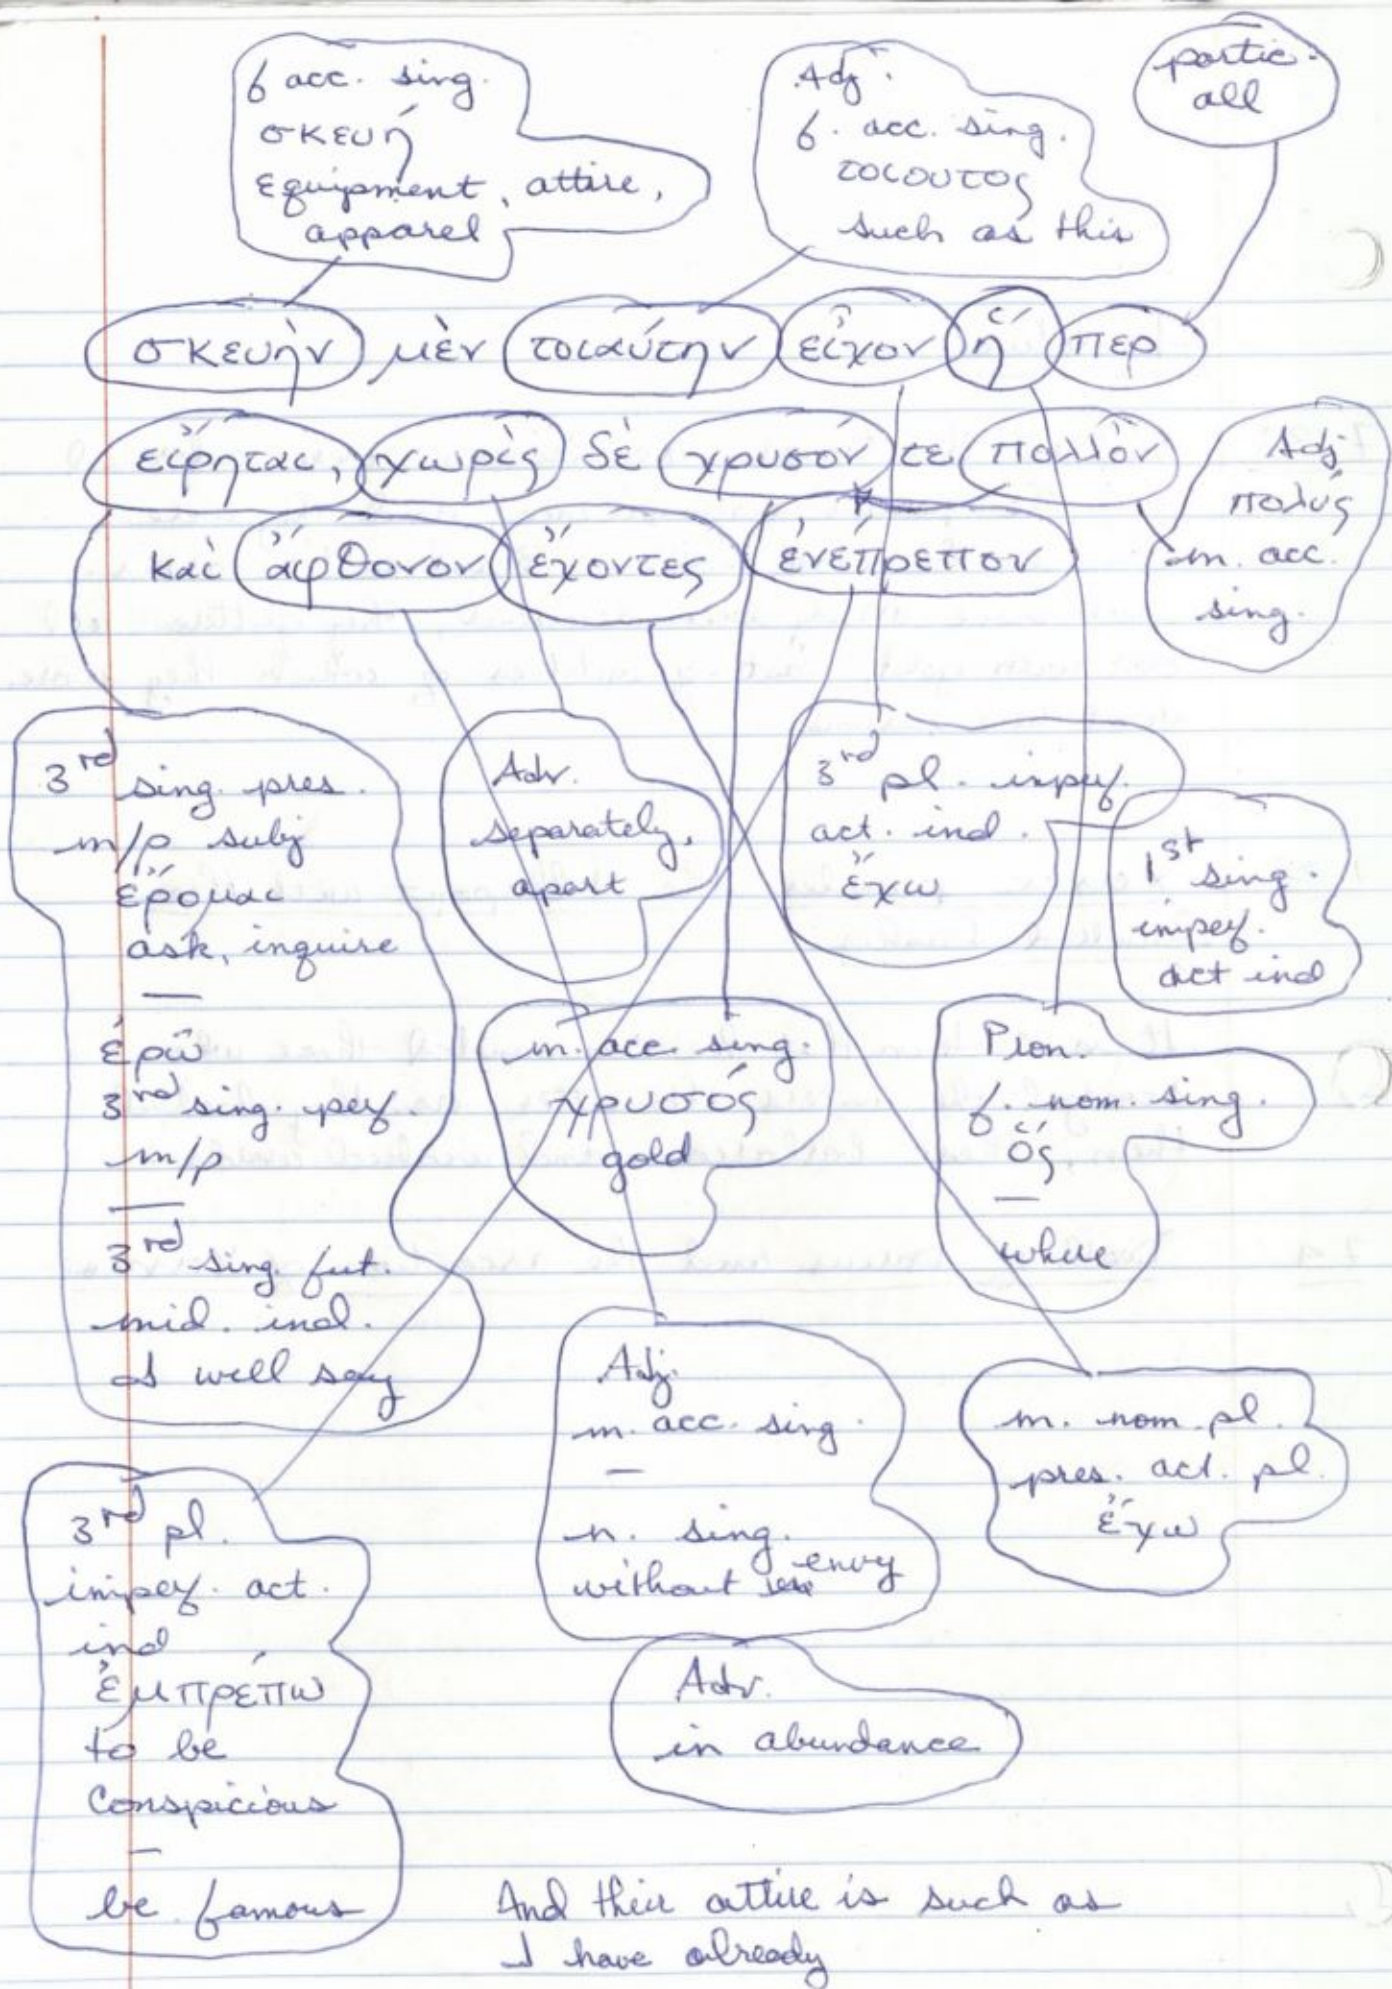 f acc. sing.
σκευή
equipment, attire,
apparel
Adj.
f. acc. sing.
τοιουτος
such as this
partic.
all
σκευὴν μὲν τοιαύτην εἶχον ἥ περ
εἴρηται, χωρὶς δὲ χρυσόν τε πολλὸν
καὶ ἄφθονον ἔχοντες ἐνέπρεπον
Adj
πολύς
m. acc.
sing.
3rd sing. pres.
m/p subj
ἔρομαι
ask, inquire
—
ἐρῶ
3rd sing. perf.
m/p
—
3rd sing. fut.
mid. ind.
I will say
Adv.
separately,
apart
3rd pl. impf.
act. ind.
ἔχω
1st sing.
impef.
act ind
m. acc. sing.
χρυσός
gold
Pron.
f. nom. sing.
ὅς
—
where
Adj.
m. acc. sing.
—
n. sing.
without envy
Adv.
in abundance
m. nom. pl.
pres. act. pl.
ἔχω
3rd pl.
impef. act.
ind
ἐμπρέπω
to be
conspicious
—
be famous
And their attire is such as
I have already